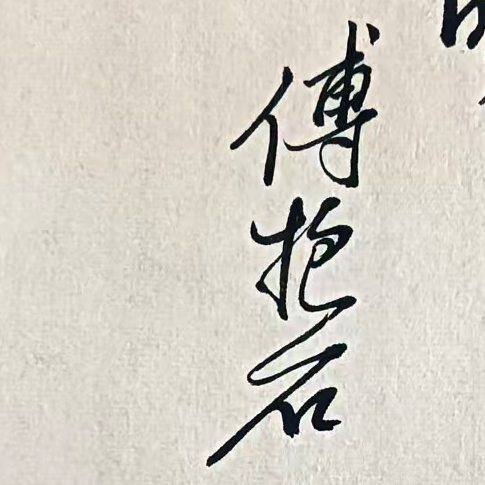 傅抱石